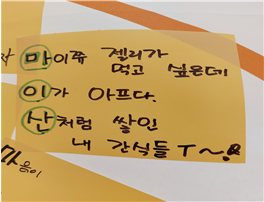 마이쮸 젤리가
먹고 싶은데
이가 아프다.
산처럼 쌓인
내 간식들 ㅜ~
마음이